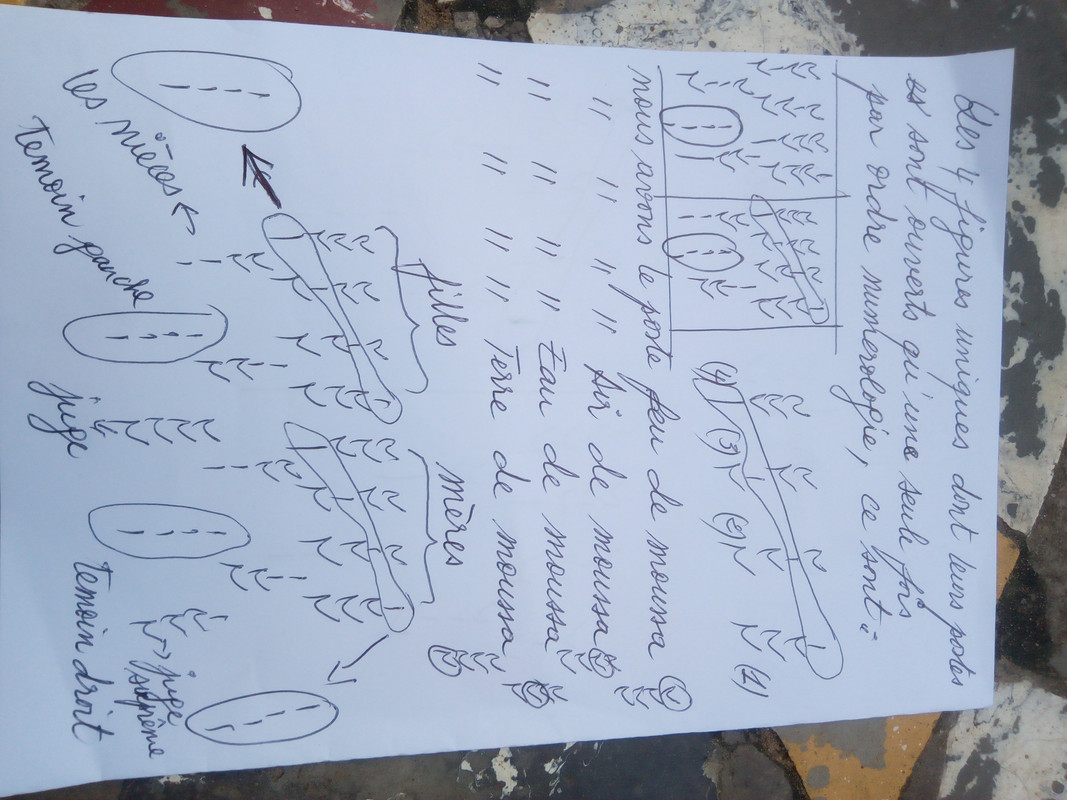 Les 4 figures uniques dont leurs postes
es sont ouverts qu'une seule fois
par ordre numerologie, ce sont :
(4) (3) (2) (1)
nous avons le poste feu de moussa
" " " " Air de moussa
" " " " Eau de moussa
" " " " Terre de moussa
filles mères
les nièces
juge suprême
temoin gauche juge temoin droit